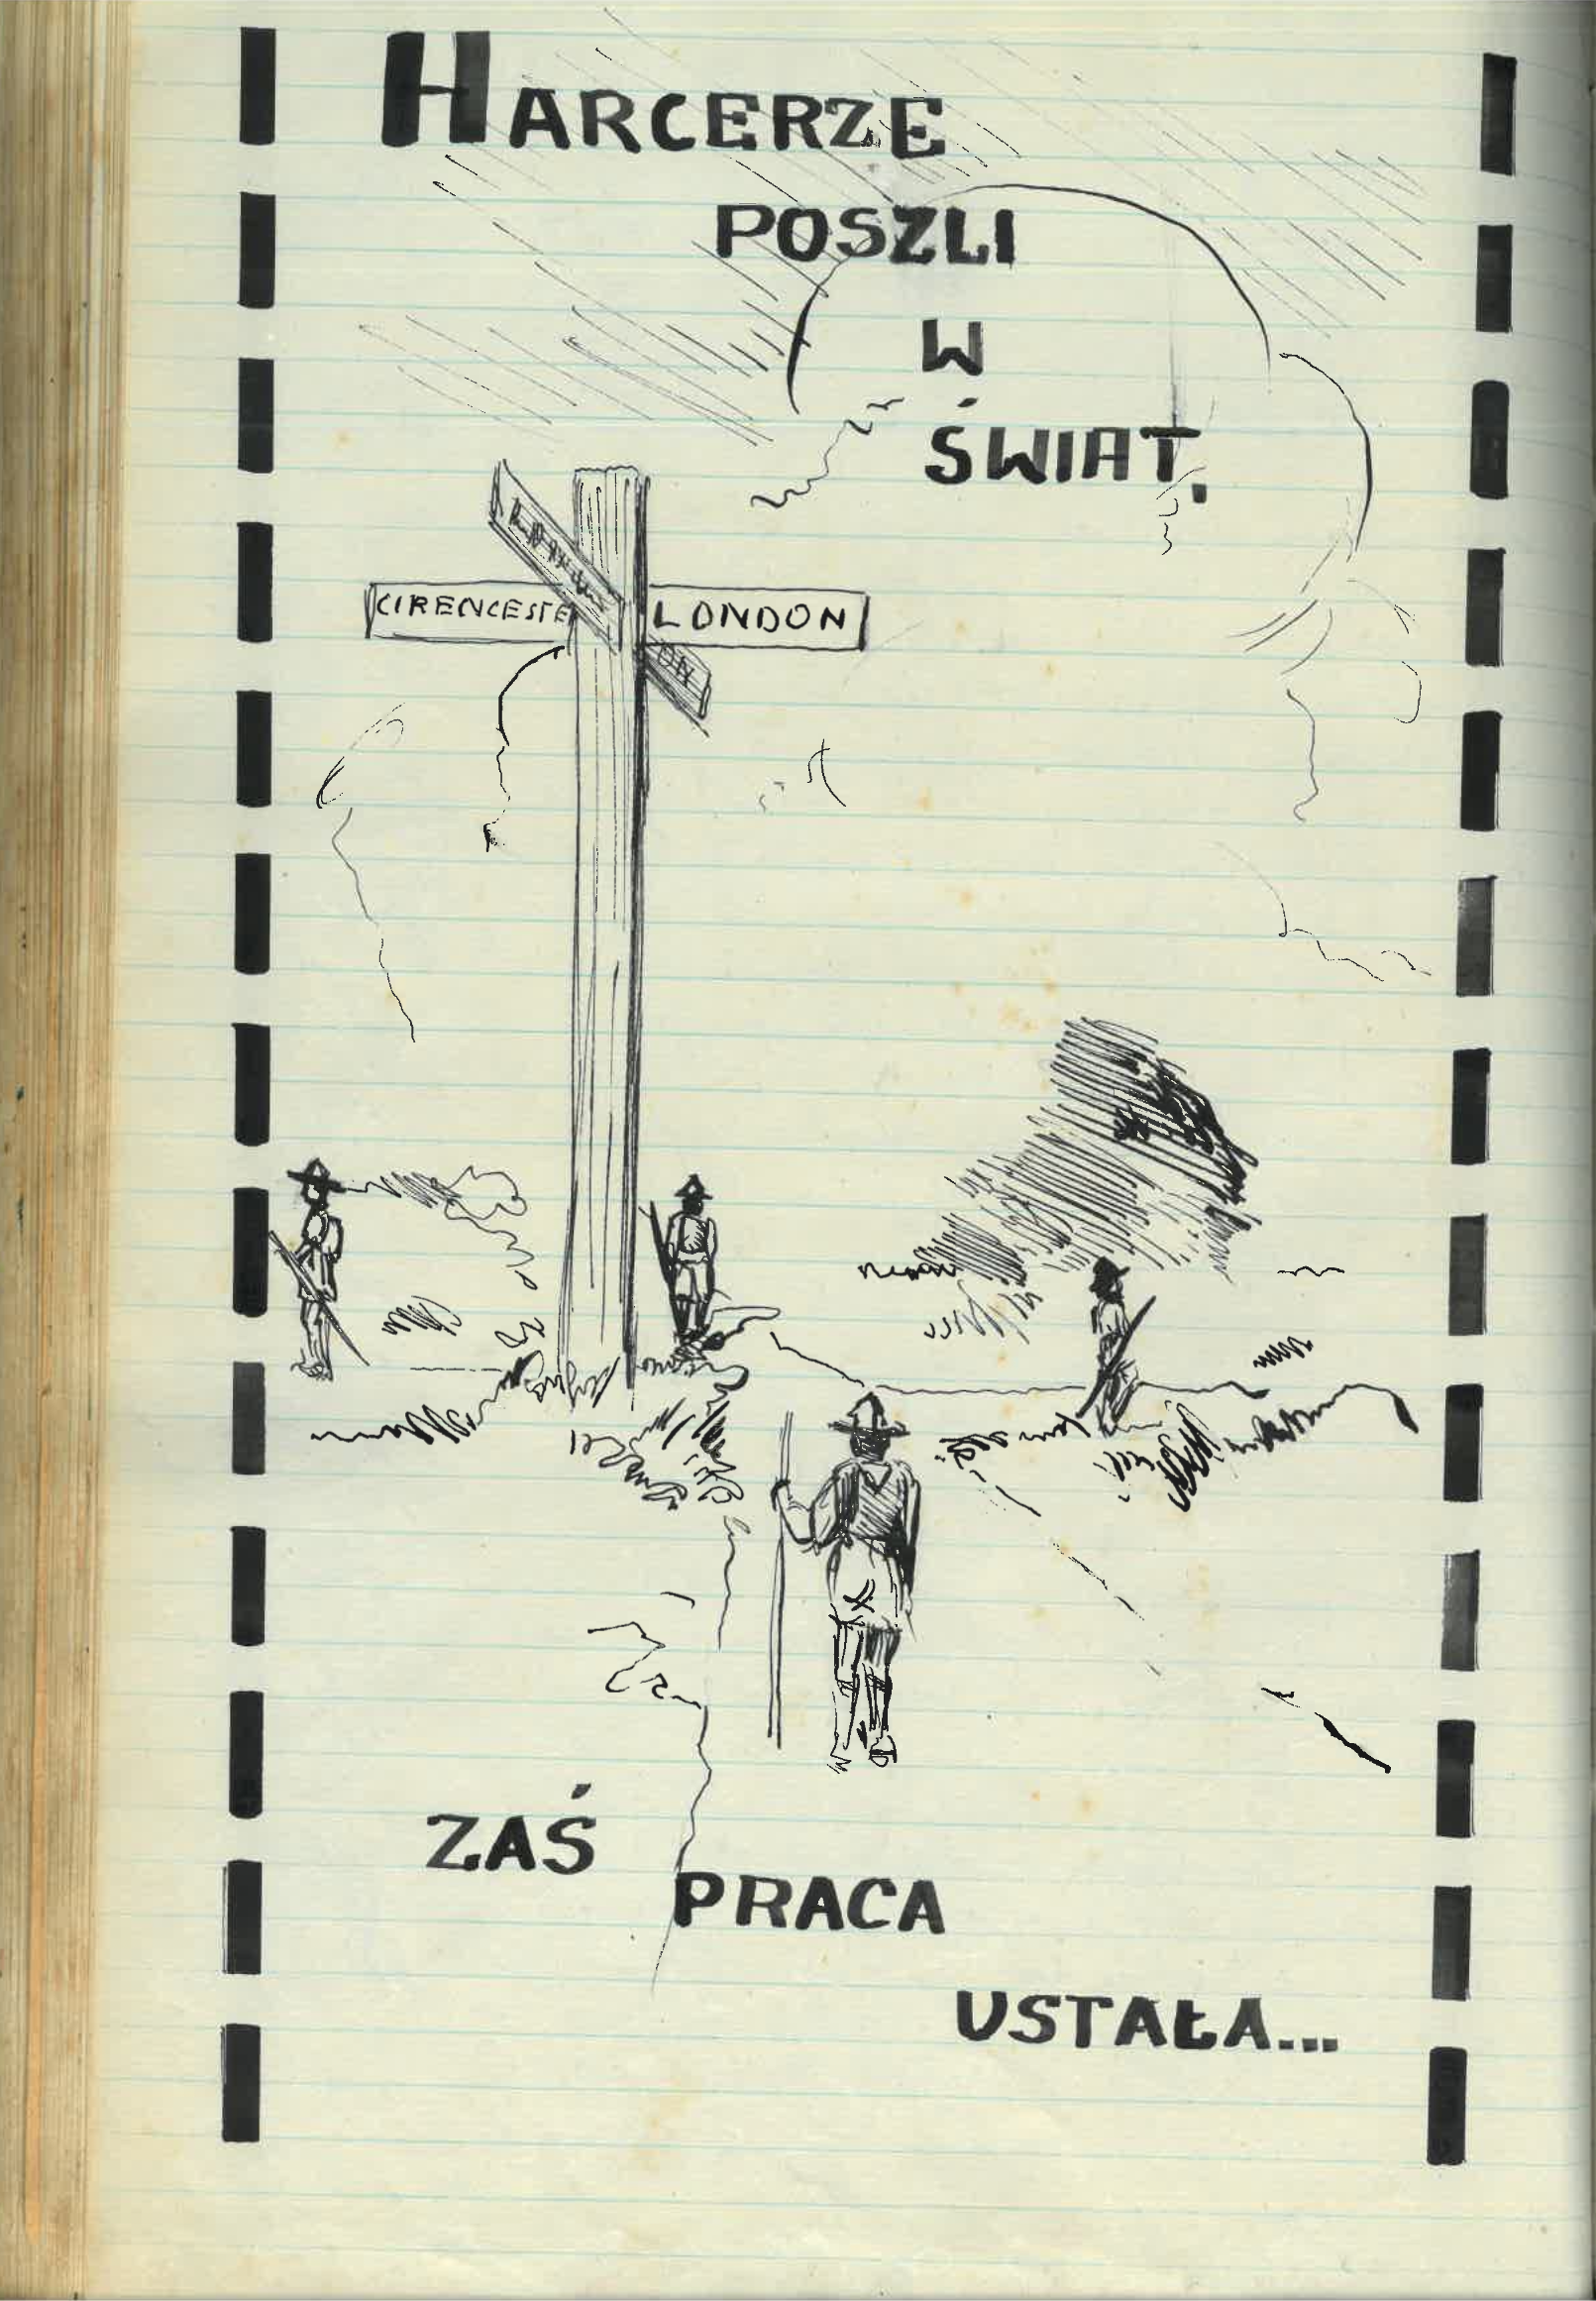 HARCERZE
POSZLI
W
ŚWIAT.
CIRENCESTE
LONDON
ZAŚ
PRACA
USTAŁA...